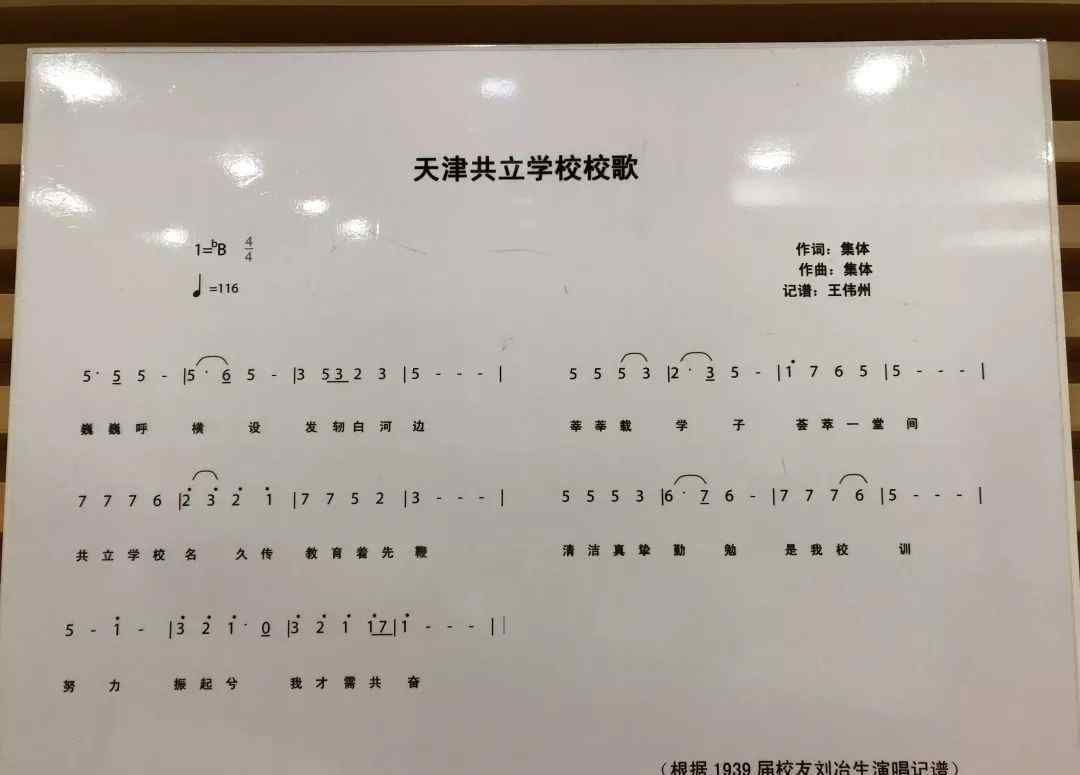 天津共立学校校歌
1=ᵇB 4/4
♩=116
作词：集体
作曲：集体
记谱：王伟州
5· 5 5 - |5· 6 5 - |3 5 3 2 3 |5 - - - | 5 5 5 3 |2· 3 5 - |i 7 6 5 |5 - - - |
巍巍呼 横 设 发轫白河 边 莘莘载 学 子 荟萃一堂间
7 7 7 6 |2̇ 3̇ 2̇ i |7 7 5 2 |3 - - - | 5 5 5 3 |6· 7 6 - |7 7 7 6 |5 - - - |
共立学校名 久传 教育着先鞭 清洁真挚勤 勉 是我校 训
5 - i - |3̇ 2̇ i· 0 |3̇ 2̇ i i 7 |i - - - ||
努 力 振起兮 我才需共奋
（根据 1939 届校友刘冶生演唱记谱）